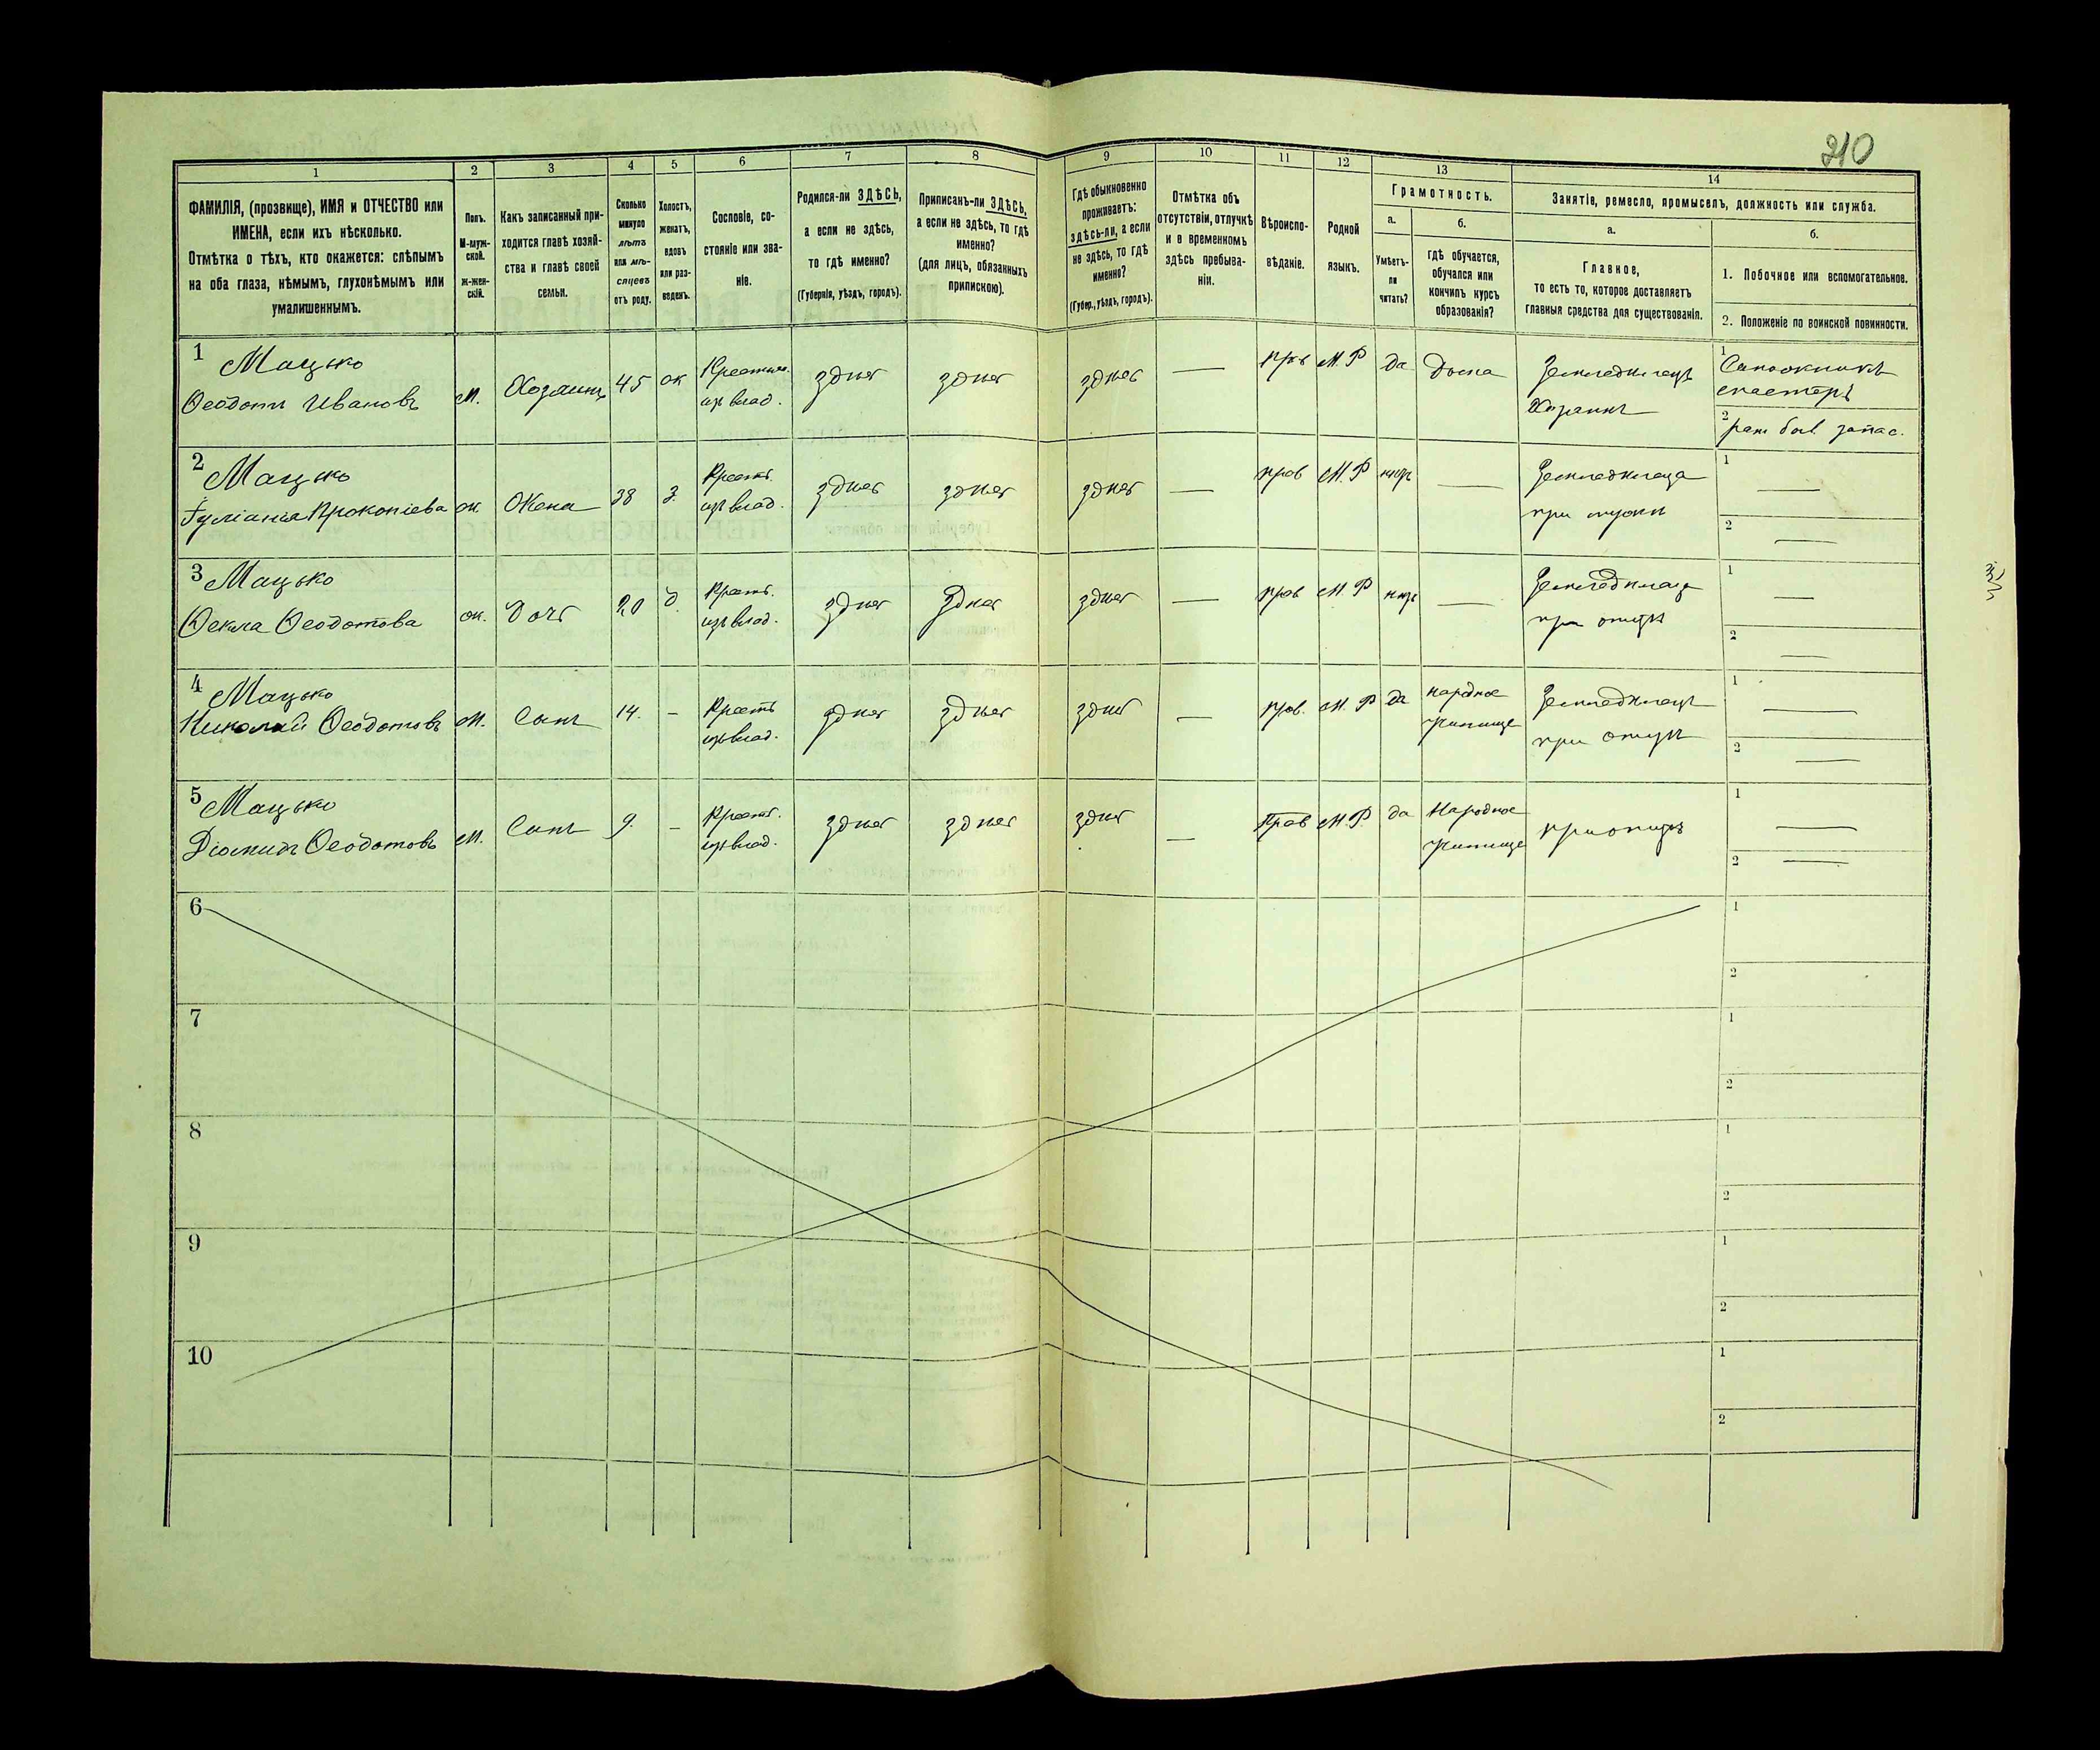 210
1
2
3
4
5
6
7
8
9
10
11
12
13
14
ФАМИЛІЯ, (прозвище), ИМЯ и ОТЧЕСТВО или
ИМЕНА, если ихъ нѣсколько.
Отмѣтка о тѣхъ, кто окажется: слѣпымъ
на оба глаза, нѣмымъ, глухонѣмымъ или
умалишеннымъ.
Полъ.
М-муж-
ской.
ж-жен-
скій.
Какъ записанный при-
ходится главѣ хозяй-
ства и главѣ своей
семьи.
Сколько
минуло
лѣтъ
или мѣ-
сяцевъ
отъ роду.
Холостъ,
женатъ,
вдовъ
или раз-
веденъ.
Сословіе, со-
стояніе или зва-
ніе.
Родился-ли ЗДѢСЬ,
а если не здѣсь,
то гдѣ именно?
(Губернія, уѣздъ, городъ).
Приписанъ-ли ЗДѢСЬ,
а если не здѣсь, то гдѣ
именно?
(для лицъ, обязанныхъ
припискою).
Гдѣ обыкновенно
проживаетъ:
здѣсь-ли, а если
не здѣсь, то гдѣ
именно?
(Губер., уѣздъ, городъ).
Отмѣтка объ
отсутствіи, отлучкѣ
и о временномъ
здѣсь пребыва-
ніи.
Вѣроиспо-
вѣданіе.
Родной
языкъ.
Грамотность.
а.
б.
Умѣетъ-
ли
читать?
гдѣ обучается,
обучался или
кончилъ курсъ
образованія?
Занятіе, ремесло, промыселъ, должность или служба.
а.
б.
Главное,
то есть то, которое доставляетъ
главныя средства для существованія.
1. Побочное или вспомогательное.
2. Положеніе по воинской повинности.
1
Мацько
Ѳеодотъ Ивановъ
м.
Хозяинъ
45
ж
Крестьян.
изъ влад.
здѣсь
здѣсь
здѣсь
—
прв
М.Р
да
дома
Земледѣлецъ
Хозяинъ
1
Сапожникъ
мастеръ
2
ряд. был. запас.
2
Мацько
Іуліанія Прокопіева
ж
Жена
38
з.
Крест.
изъ влад.
здѣсь
здѣсь
здѣсь
—
прав
М.Р
нѣтъ
—
Земледѣлица
при мужѣ
1
—
2
—
3
Мацько
Ѳекла Ѳеодотова
ж.
Дочь
20
д.
Крест.
изъ влад.
здѣсь
здѣсь
здѣсь
—
прав
М.Р
нѣтъ
—
при отцѣ
1
—
2
—
4
Мацько
Николай Ѳеодотовъ
М.
Сынъ
14.
–
Крест
изъ влад.
здѣсь
здѣсь
здѣсь
—
прав.
М.Р
да
народное
училище
Земледѣлецъ
при отцѣ
1
—
2
—
5
Мацько
Діомидъ Ѳеодотовъ
М.
Сынъ
9.
–
Крест.
изъ влад.
здѣсь
здѣсь
здѣсь
—
Прав
М.Р.
да
Народное
училище
при отцѣ
1
—
2
—
6
1
2
7
1
2
8
1
2
9
1
2
10
1
2